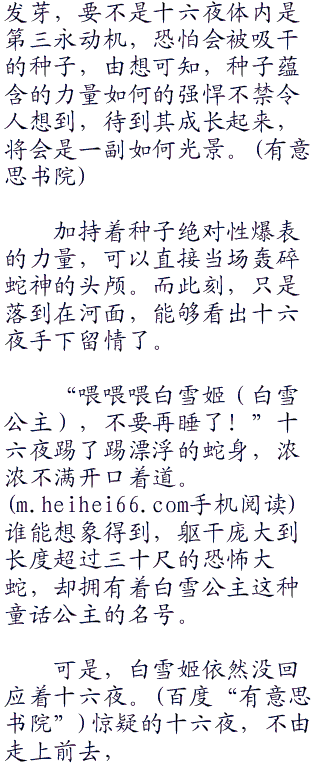 发芽，要不是十六夜体内是
第三永动机，恐怕会被吸干
的种子，由想可知，种子蕴
含的力量如何的强悍不禁令
人想到，待到其成长起来，
将会是一副如何光景。(有意
思书院)
加持着种子绝对性爆表
的力量，可以直接当场轰碎
蛇神的头颅。而此刻，只是
落到在河面，能够看出十六
夜手下留情了。
“喂喂喂白雪姬（白雪
公主），不要再睡了！”十
六夜踢了踢漂浮的蛇身，浓
浓不满开口着道。
(m.heihei66.com手机阅读)
谁能想象得到，躯干庞大到
长度超过三十尺的恐怖大
蛇，却拥有着白雪公主这种
童话公主的名号。
可是，白雪姬依然没回
应着十六夜。(百度“有意思
书院”)惊疑的十六夜，不由
走上前去，